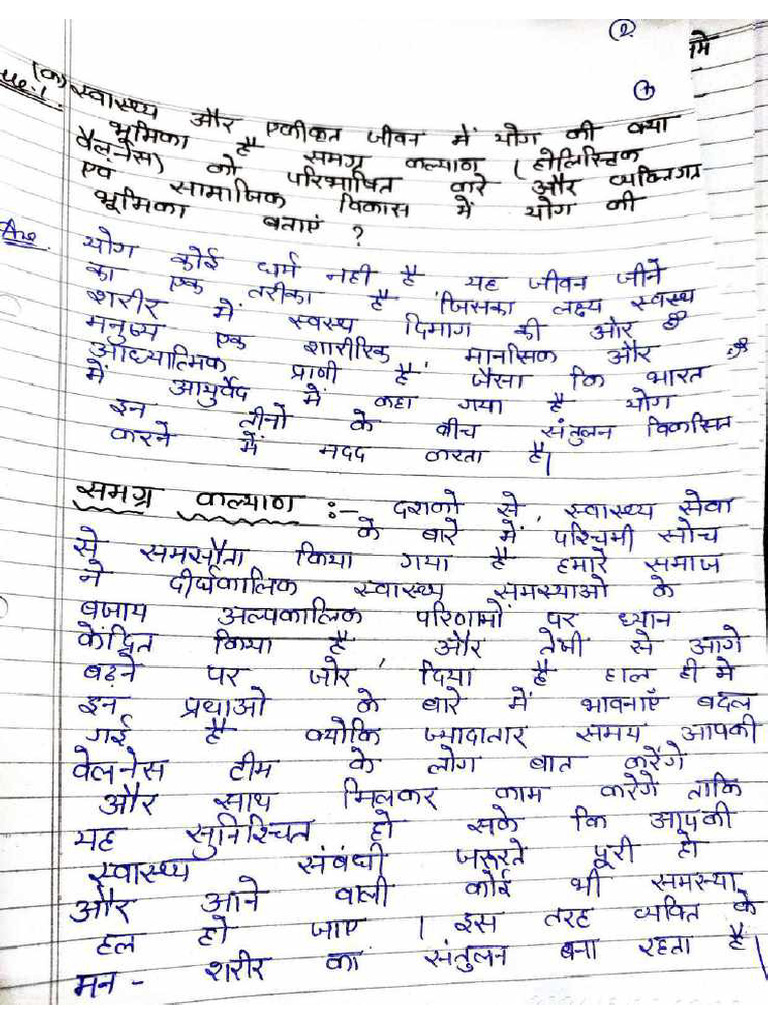 2
मि
1
(क) स्वास्थ्य और एकीकृत जीवन में योग की क्या
भूमिका है समग्र कल्याण (होलिस्टिक
वैलनेस) को परिभाषित करे और व्यक्तिगत
एवं सामाजिक विकास में योग की
भूमिका बताएं ?
Ans योग कोई धर्म नही है यह जीवन जीने
का एक तरीका है जिसका लक्ष्य स्वस्थ
शरीर में स्वस्थ दिमाग की और है
मनुष्य एक शारीरिक, मानसिक और
आध्यात्मिक प्राणी है, जैसा कि भारत
में आयुर्वेद में कहा गया है योग
इन तीनो के बीच संतुलन विकसित
करने में मदद करता है।
समग्र कल्याण :- दशको से, स्वास्थ्य सेवा
के बारे में पश्चिमी सोच
से समसौता किया गया है हमारे समाज
ने दीर्घकालिक स्वास्थ्य समस्याओ के
बजाय अल्पकालिक परिणामों पर ध्यान
केंद्रित किया है और तेजी से आगे
बढ़ने पर जोर दिया है हाल ही मे
इन प्रथाओ के बारे में भावनाएँ बदल
गई है क्योकि ज्यादातार समय आपकी
वेलनेस टीम के लोग बात करेंगे
और साथ मिलकर काम करेगे ताकि
यह सुनिश्चित हो सके कि आपकी
स्वास्थ्य संबंधी जरूरते पूरी हो
और आने वाली कोई भी समस्या
हल हो जाए । इस तरह व्यक्ति के
मन - शरीर का संतुलन बना रहता है।